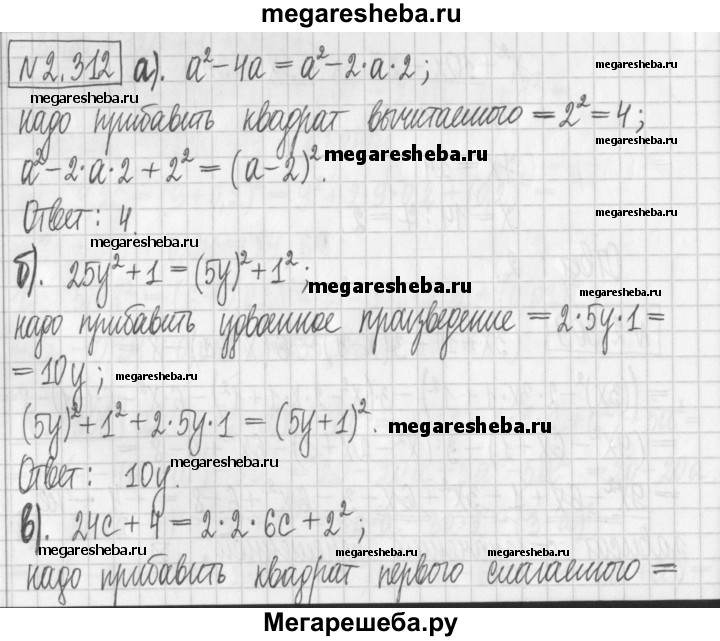 megaresheba.ru
№2.312 а). a² - 4a = a² - 2·a·2;
megaresheba.ru
megaresheba.ru
надо прибавить квадрат вычитаемого = 2² = 4;
megaresheba.ru
a² - 2·a·2 + 2² = (a-2)².
megaresheba.ru
Ответ: 4.
megaresheba.ru
megaresheba.ru
б). 25y² + 1 = (5y)² + 1²;
megaresheba.ru
megaresheba.ru
надо прибавить удвоенное произведение = 2·5y·1 =
= 10y;
megaresheba.ru
megaresheba.ru
(5y)² + 1² + 2·5y·1 = (5y+1)².
megaresheba.ru
Ответ: 10y.
megaresheba.ru
в). 24c + 4 = 2·2·6c + 2²;
megaresheba.ru
megaresheba.ru
megaresheba.ru
надо прибавить квадрат первого слагаемого =
Мегарешеба.ру